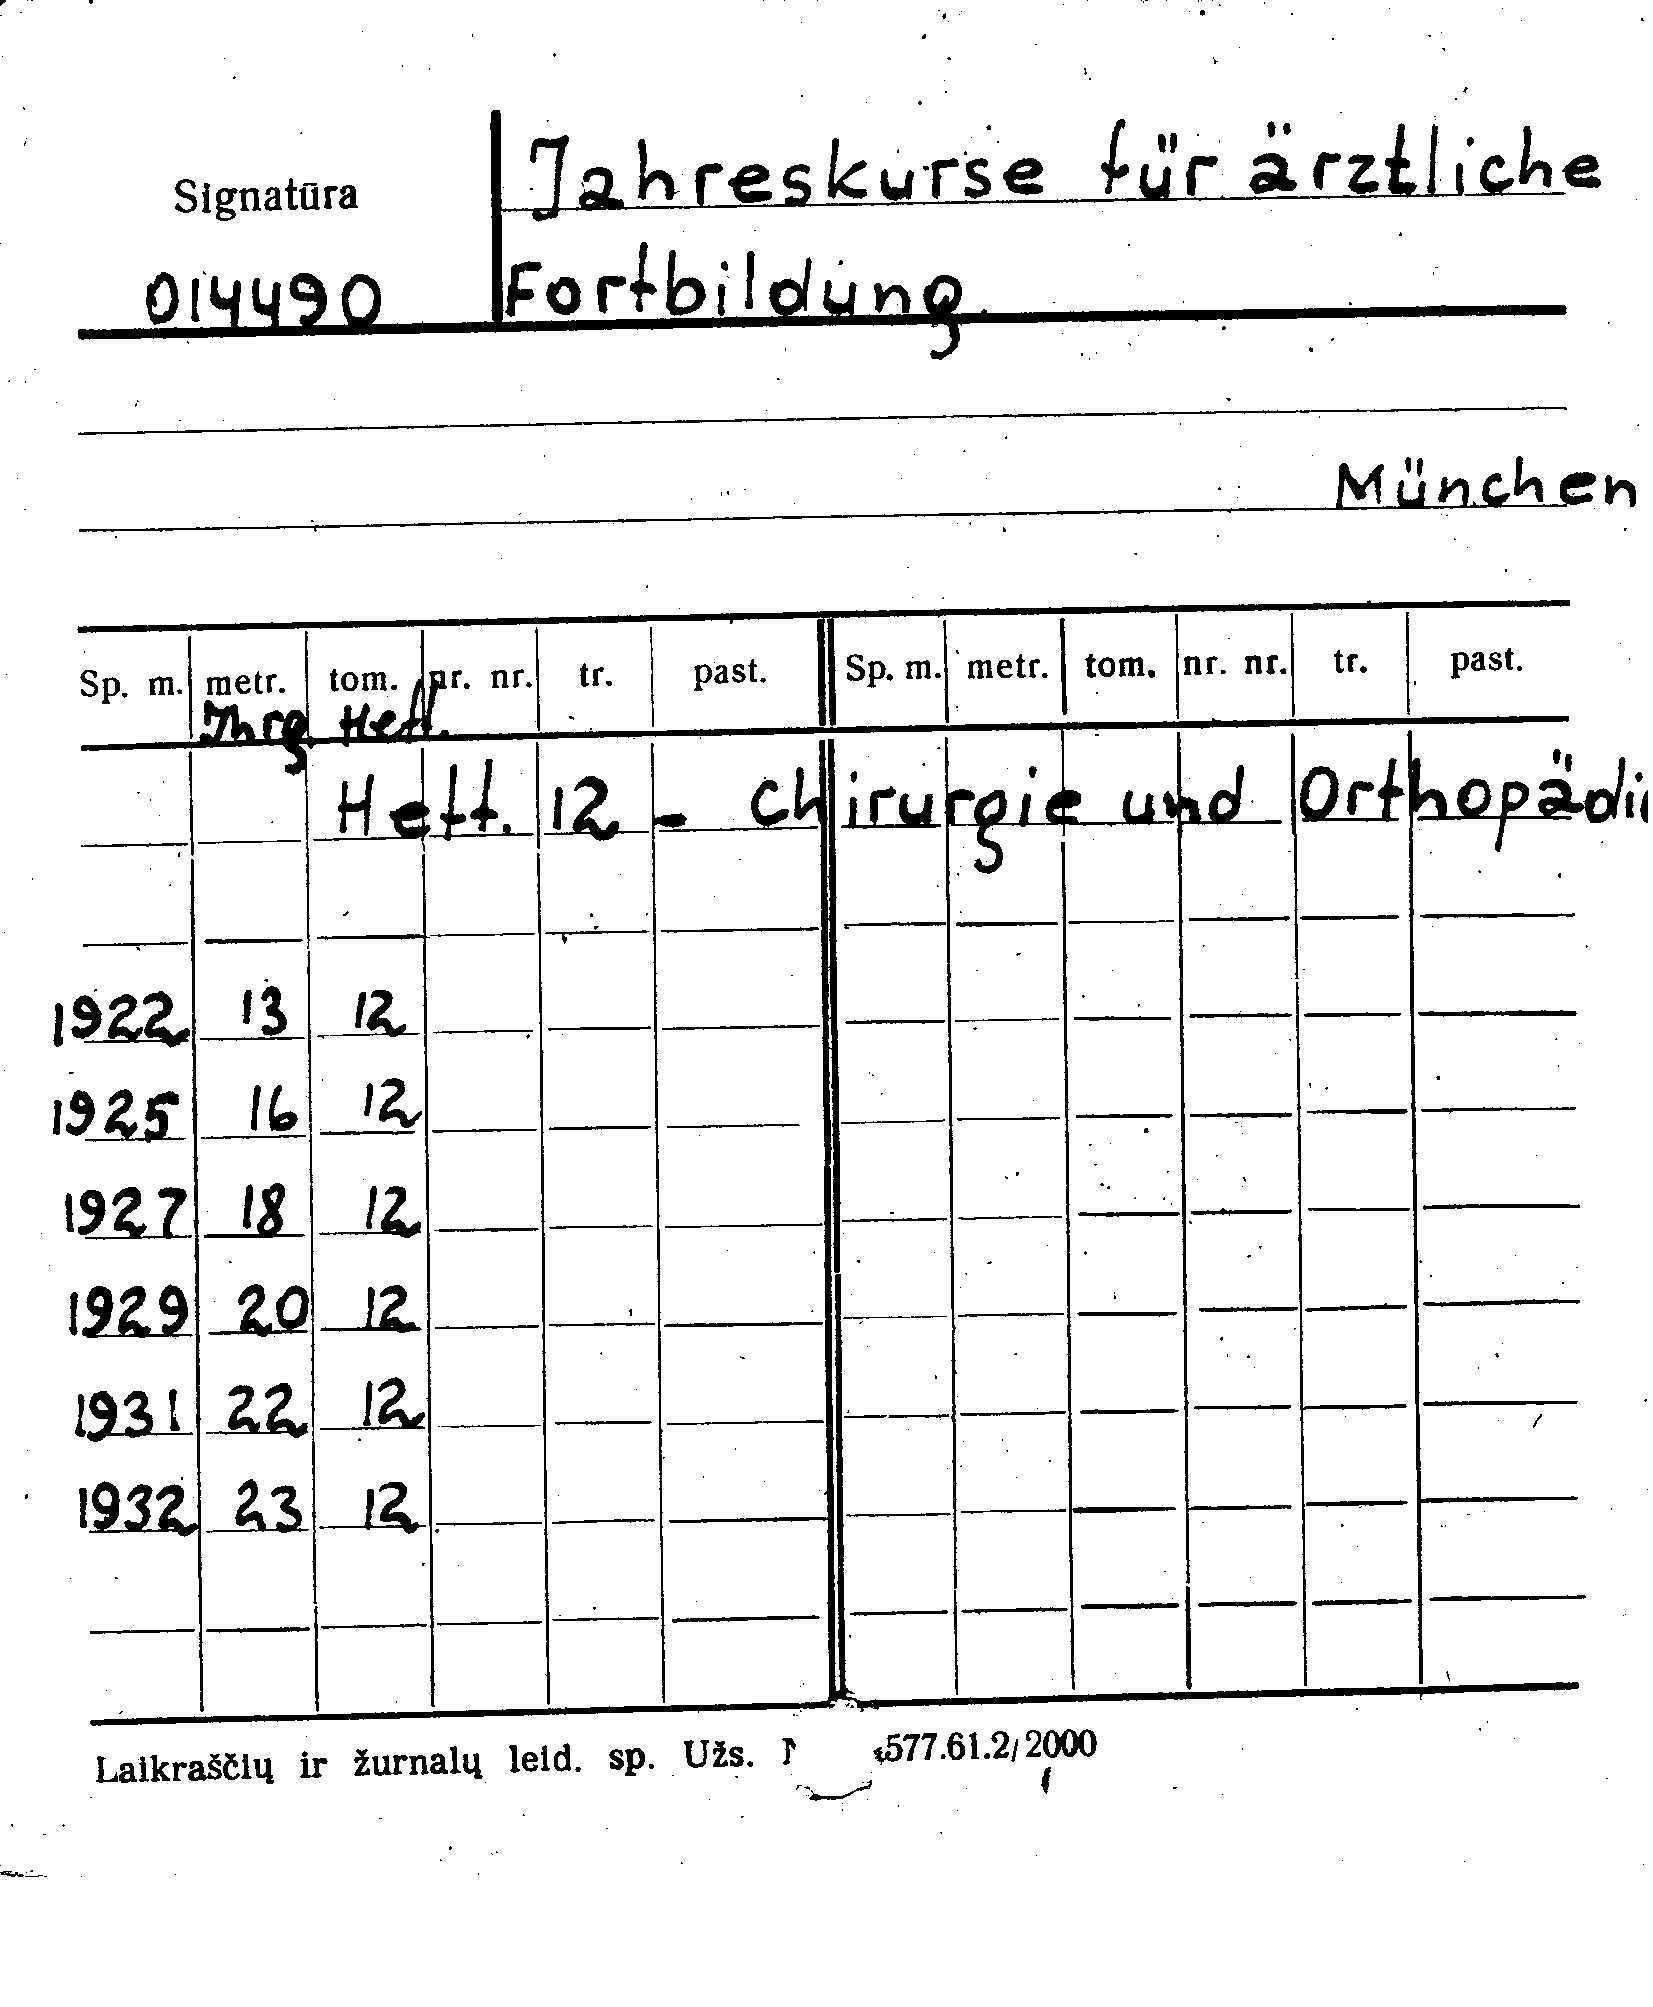 Jahreskurse für ärztliche
Signatūra
014490 Fortbildung.
München
Sp. m. metr. tom. nr. nr. tr. past. Sp. m. metr. tom. nr. nr. tr. past.
Jhrg. Heft.
Heft. 12 - Chirurgie und Orthopädi
1922 13 12
1925 16 12
1927 18 12
1929 20 12
1931 22 12
1932 23 12
Laikraščių ir žurnalų leid. sp. Užs. 577.61.2/2000